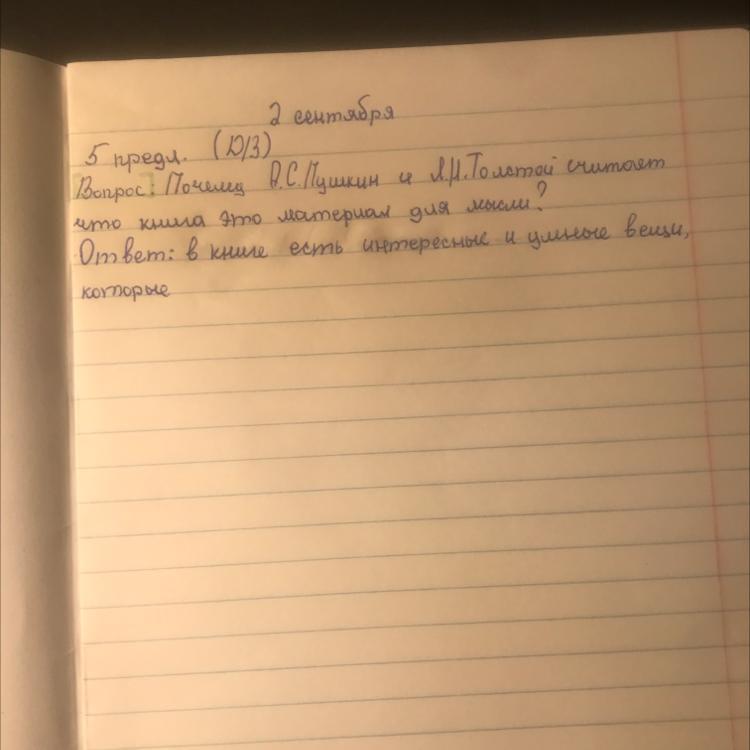 2 сентября
5 предл. (D/З)
Вопрос: Почему А.С.Пушкин и Л.Н.Толстой считает
что книга это материал для мысли?
Ответ: в книге есть интересные и умные вещи,
которые